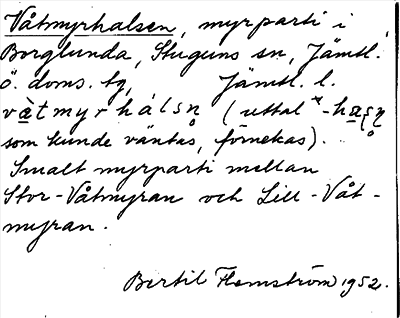 Våtmyrhalsen, myrparti i
Borglunda, Stuguns sn, Jämtl.
ö. doms. tg, Jämtl. l.
vàtmyrhálsn̥ (uttal *-ha̱ʂn̥
som kunde väntas, förnekas).
Smalt myrparti mellan
Stor-Våtmyran och Lill-Våt-
myran.
Bertil Flemström 1952.